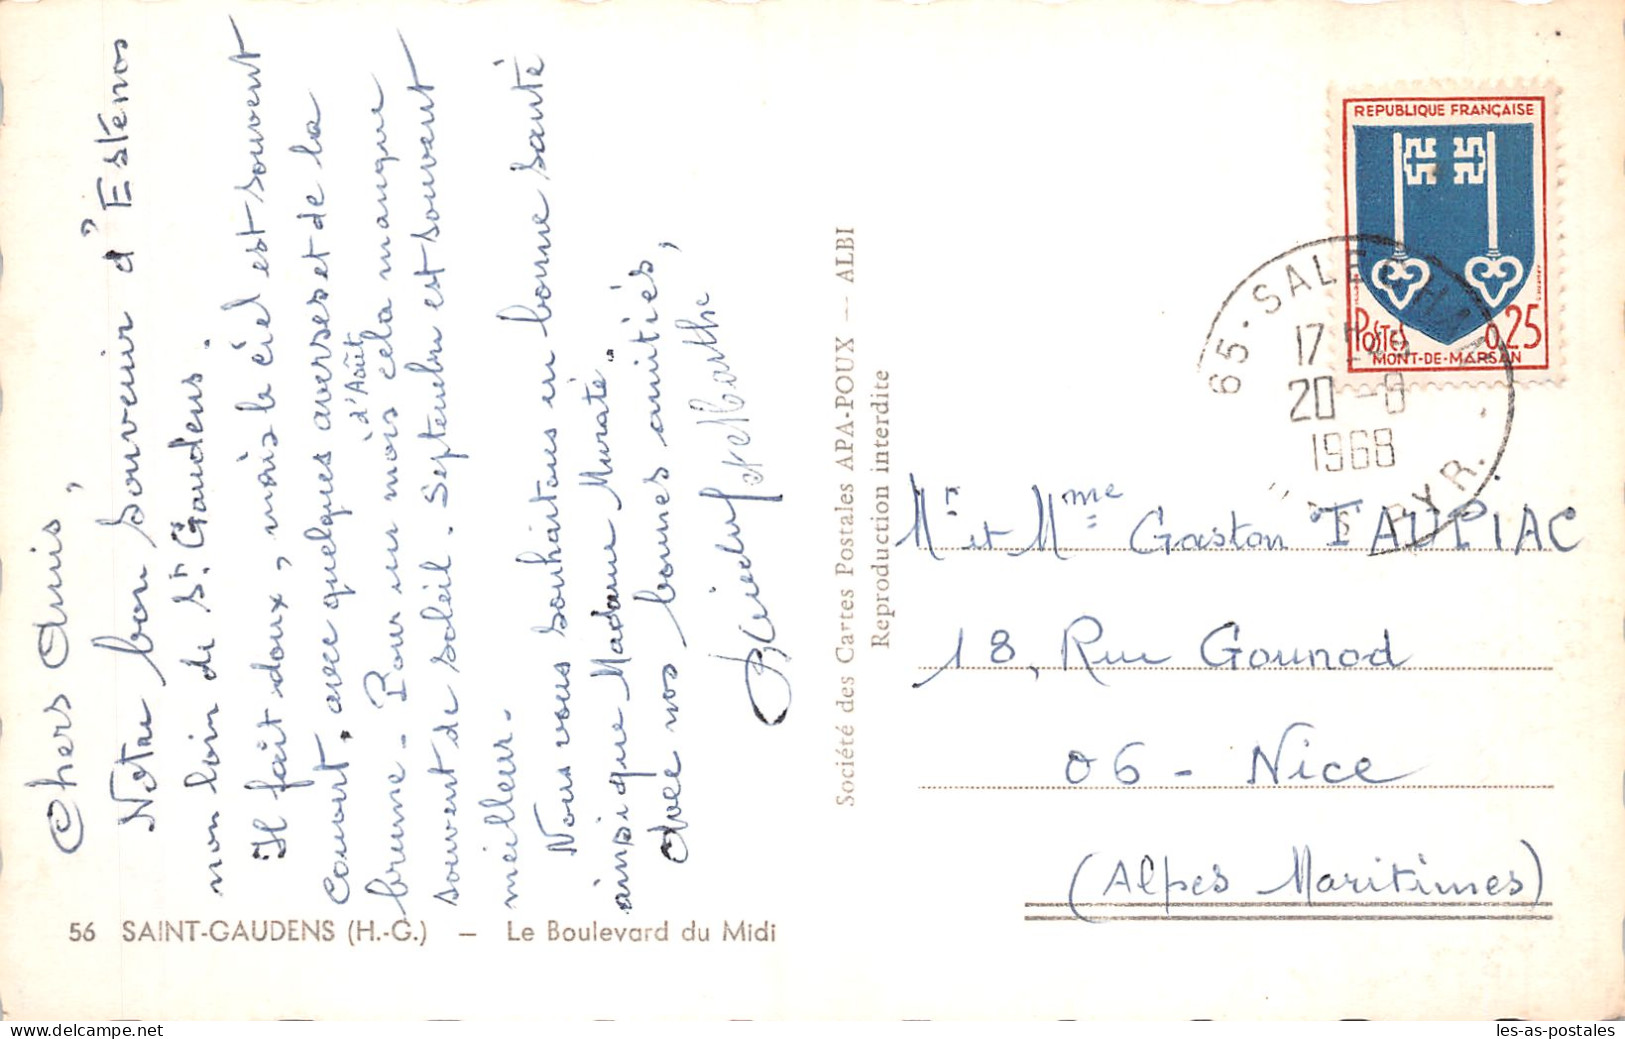 Chers Amis,
Notre bon souvenir d'Esténos
non loin de St Gaudens.
Il fait doux, mais le ciel est souvent
couvert, avec quelques averses et de la
brume. - Pour un mois d'Août cela manque
souvent de soleil. Septembre est souvent
meilleur.
Nous vous souhaitons en bonne santé
ainsi que Madame Muraté.
Avec nos bonnes amitiés,
56 SAINT-GAUDENS (H.-G.) — Le Boulevard du Midi
Société des Cartes Postales APA-POUX — ALBI
Reproduction interdite
REPUBLIQUE FRANÇAISE
POSTES
0,25
MONT-DE-MARSAN
65 - SALECHAN
17 H
20 -8
1968
PYR.
Mr et Mme Gaston TAUPIAC
18, Rue Gounod
06 - Nice
(Alpes Maritimes)
les-as-postales